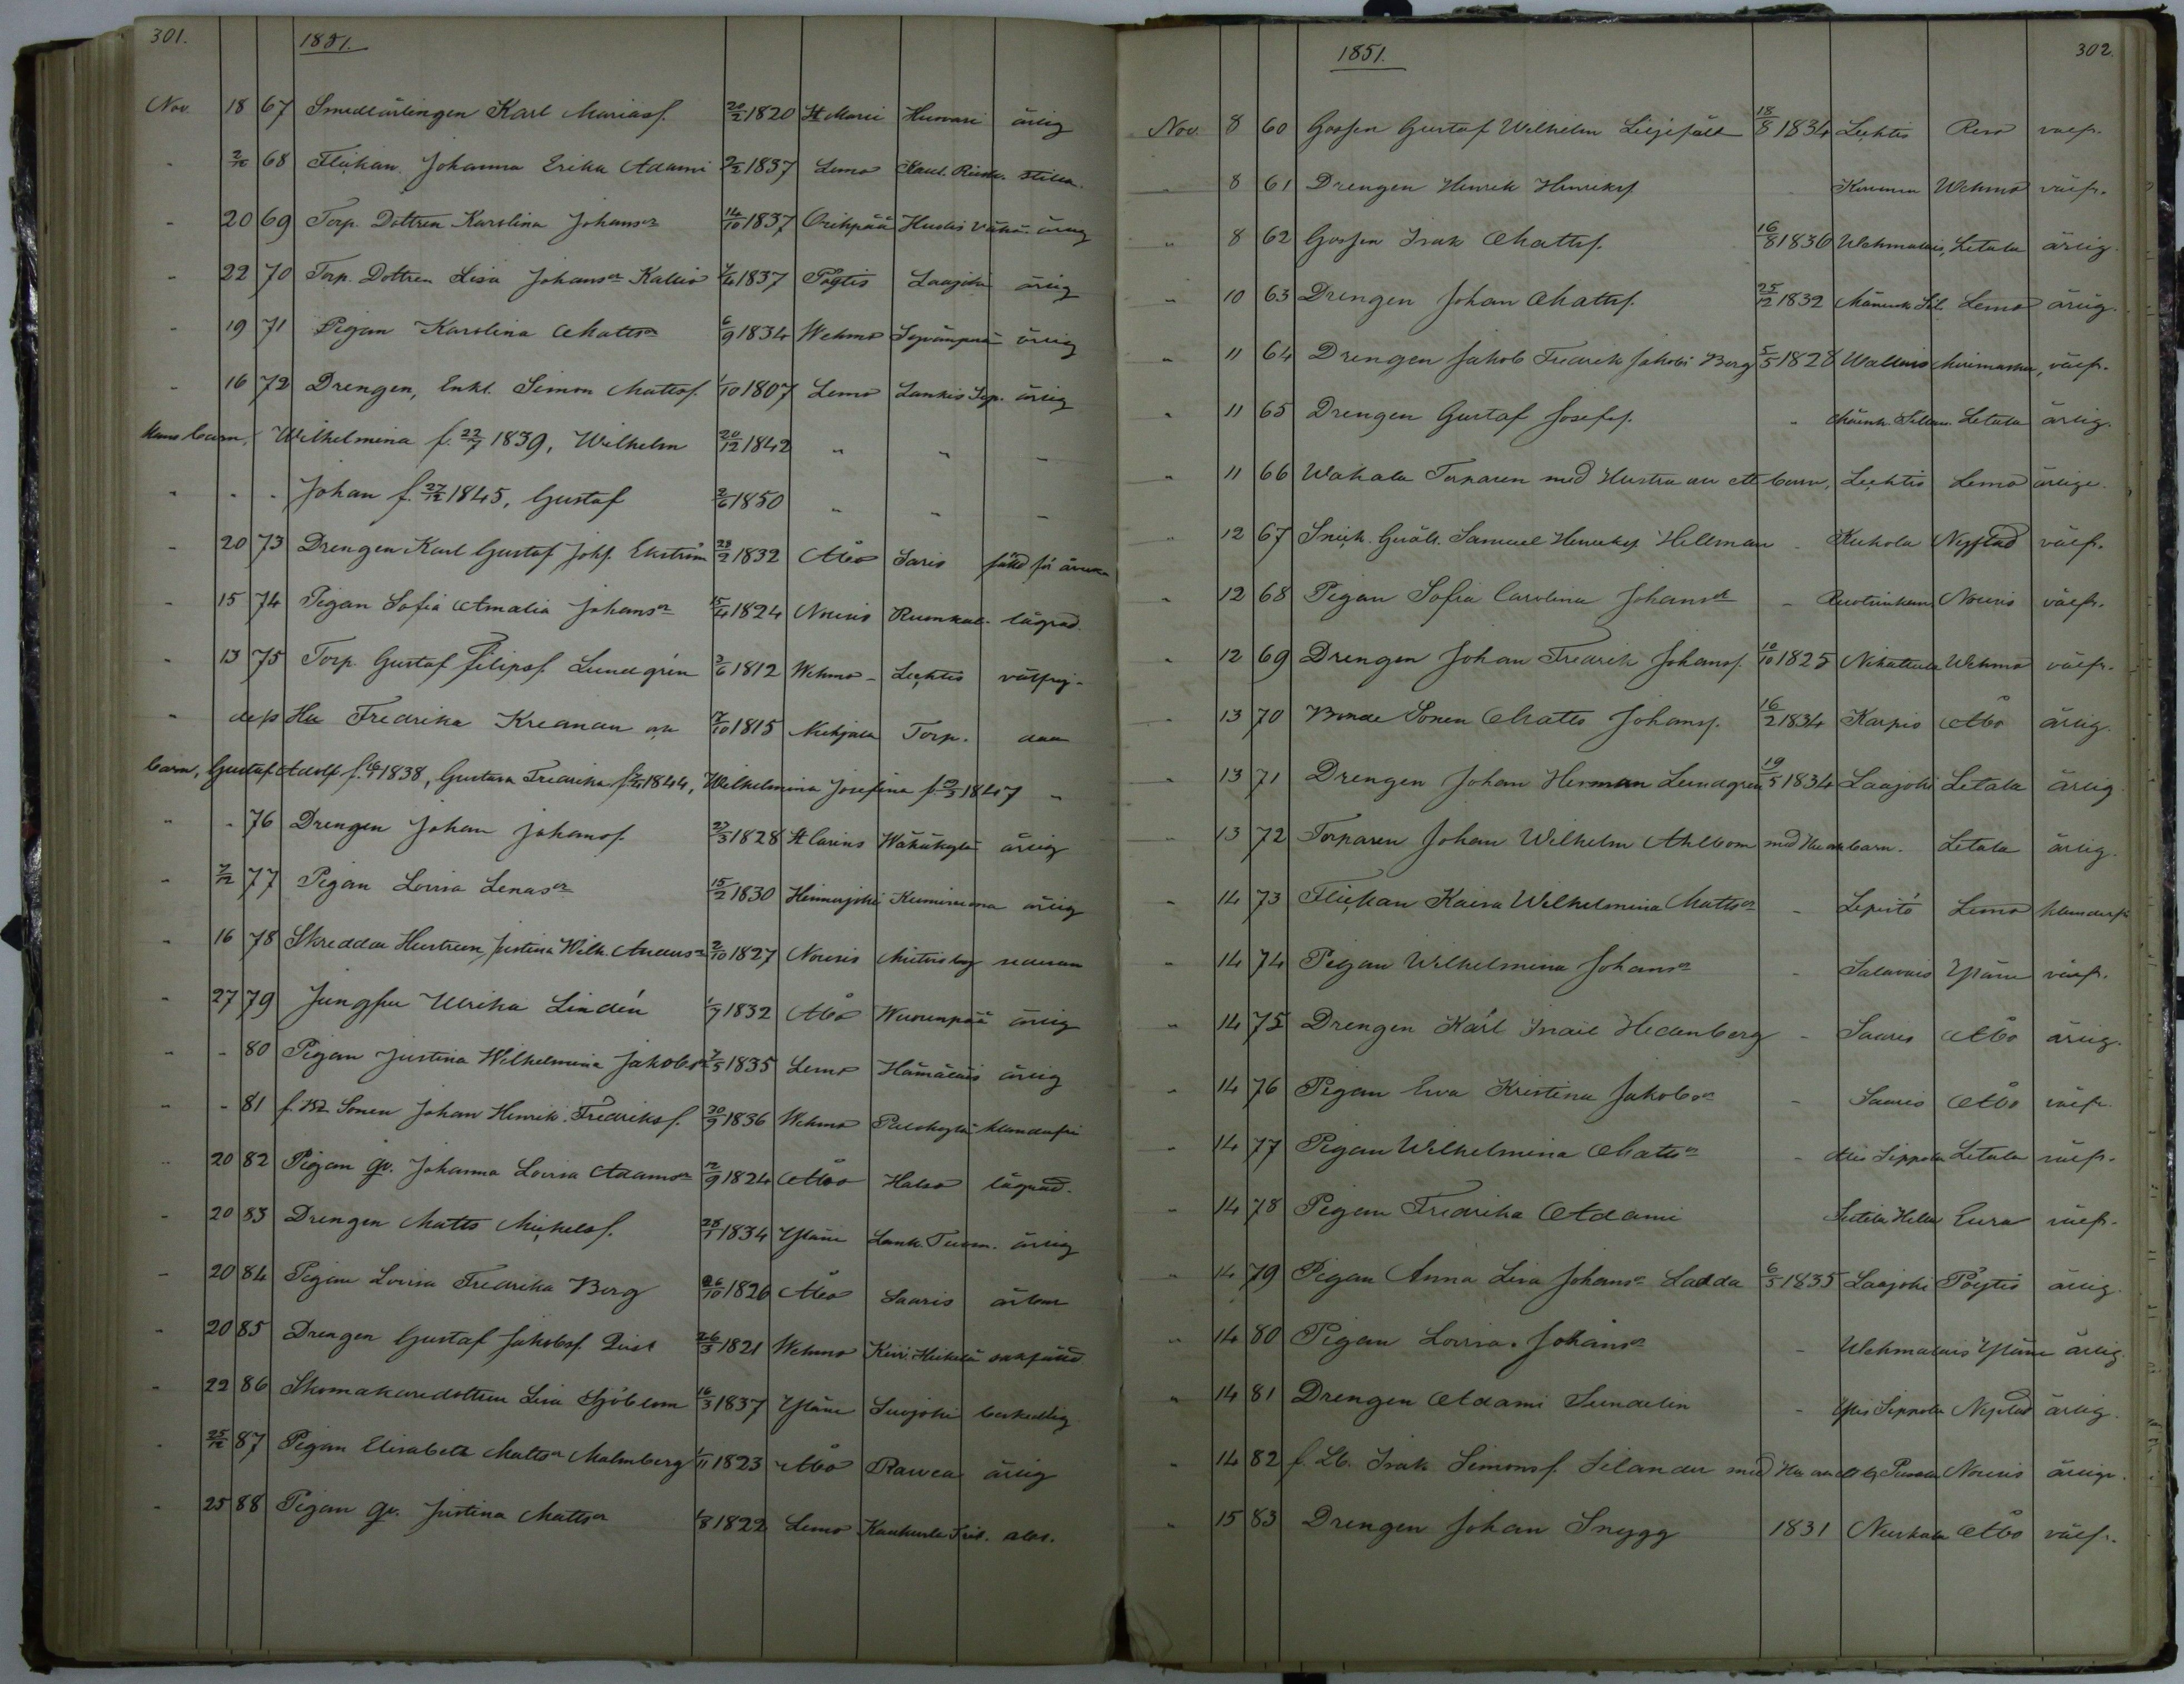 301.
1851.
Nov. 18 67 Smedlärlingen Karl Mariasf. 20/2 1820 St Marie Huovari ärlig
" 2/12 68 Flickan Johanna Erika Adami 2/2 1837 Lemo stilla
" 20 69 Torp. Dottren Karolina Johansr 14/10 1837 Orihpää Huolis Vähä. ärlig
" 22 70 Torp. Dottren Lisa Johansr Kallio 7/4 1837 Pöytis Laajoki ärlig
" 19 71 Pigan Karolina Mattsr 6/9 1834 Wehmo ärlig
" 16 72 Drengen, Enkl. Simon Mattsf. 1/10 1807 Lemo Lankis ärlig
Hans barn, Wilhelmina f. 22/7 1839, Wilhelm 20/12 1842 " " "
" " " Johan f. 27/12 1845, Gustaf 2/6 1850 " " "
" 20 73 Drengen Karl Gustaf Johsf. Ekström 28/2 1832 Åbo Saris
" 15 74 Pigan Sofia Amalia Johansr 15/4 1824 Nousis lägrad
" 13 75 Torp. Gustaf Filipsf. Lundgrén 3/6 1812 Wehmo Lechtis välfrejd
" dess Hu Fredrika 7/10 1815 Torp.
barn, Gustaf Adolf f. 1838, Gustava Fredrika f. 1844, Wilhelmina Josefina f. 1847 "
" " 76 Drengen Johan Johansf. 27/3 1828 St Carins Wähäkylä ärlig
" 7/12 77 Pigan Lovisa Lenasr 15/2 1830 Hinnerjoki ärlig
" 16 78 Skreddar Hustrun Justina Wilh. Andersr 2/10 1827 Nousis
" 27 79 Jungfru Ulrika Lindén 1/7 1832 Åbo Wuorenpää ärlig
" " 80 Pigan Justina Wilhelmina Jakobsr 7/5 1835 Lemo Hämäläis ärlig
" " 81 Sonen Johan Henrik Fredriksf. 30/9 1836 Wehmo Palokylä klanderfri
" 20 82 Pigan qv. Johanna Lovisa Adamsr 12/9 1824 Åbo lägrad.
" 20 83 Drengen Matts Michelsf. 28/1 1834 Yläne ärlig
" 20 84 Pigan Lovisa Fredrika Berg 26/10 1826 Åbo Saaris
" 20 85 Drengen Gustaf Jakobsf. Qvist 26/3 1821 Wehmo sakfälld
" 22 86 Skomakaredottren Lisa Sjöblom 16/3 1837 Yläne Suojoki beskedlig
" 25/12 87 Pigan Elisabeth Mattsr Malmberg 1/11 1823 Åbo Ravea ärlig
" 25 88 Pigan qv. Justina Mattsr 1/8 1822 Lemo
1851.
302
Nov. 8 60 Gossen Gustaf Wilhelm Liljefält 18/8 1834 Lechtis Reso välfr.
" 8 61 Drengen Henrik Henriksf. Wehmo välfr.
" 8 62 Gossen Isak Mattsf. 16/8 1836 Wehmalais, Letala ärlig.
" 10 63 Drengen Johan Mattsf. 25/12 1832 Lemo ärlig.
" 11 64 Drengen Jakob Fredrik Jakobi Berg 5/5 1828 Wallais Mirimasku, välfr.
" 11 65 Drengen Gustaf Josefsf. " Letala ärlig.
" 11 66 Wakala Torparen med Hustru och ett barn, Lechtis Lemo ärlige.
" 12 67 Snick. Gesäll. Samuel Henriksf. Hellman " Kukola Nystad välfr.
" 12 68 Pigan Sofia Carolina Johansr " Nousis välfr.
" 12 69 Drengen Johan Fredrik Johansf. 10/10 1825 Nihattula Wehmo välfr.
" 13 70 Bonde Sonen Matts Johansf. 16/2 1834 Karpis Åbo ärlig.
" 13 71 Drengen Johan Herman Lundgren 19/5 1834 Laajoki Letala ärlig
" 13 72 Torparen Johan Wilhelm Ahlbom med Hu och barn. Letala ärlig.
" 14 73 Flickan Kaisa Wilhelmina Mattsr " Lepistö Lemo klanderfri
" 14 74 Pigan Wilhelmina Johansr " Salavais Yläne välfr.
" 14 75 Drengen Karl Israil Hedenberg " Saares Åbo ärlig.
" 14 76 Pigan Eva Kristina Jakobsr " Saares Åbo välfr.
" 14 77 Pigan Wilhelmina Mattsr " Alis Sippola Letala välfr.
" 14 78 Pigan Fredrika Adami Eura välfr.
" 14 79 Pigan Anna Lisa Johansr Ladda 6/5 1835 Laajoki Pöytis ärlig.
" 14 80 Pigan Lovisa Johansr " Wehmalais Yläne ärlig.
" 14 81 Drengen Adami Sundelin " Ylis Sippola Nystad ärlig.
" 14 82 f. Lb. Isak Simonsf. Silander med Hu och Nousis ärlige.
" 15 83 Drengen Johan Snygg 1831 Åbo välfr.